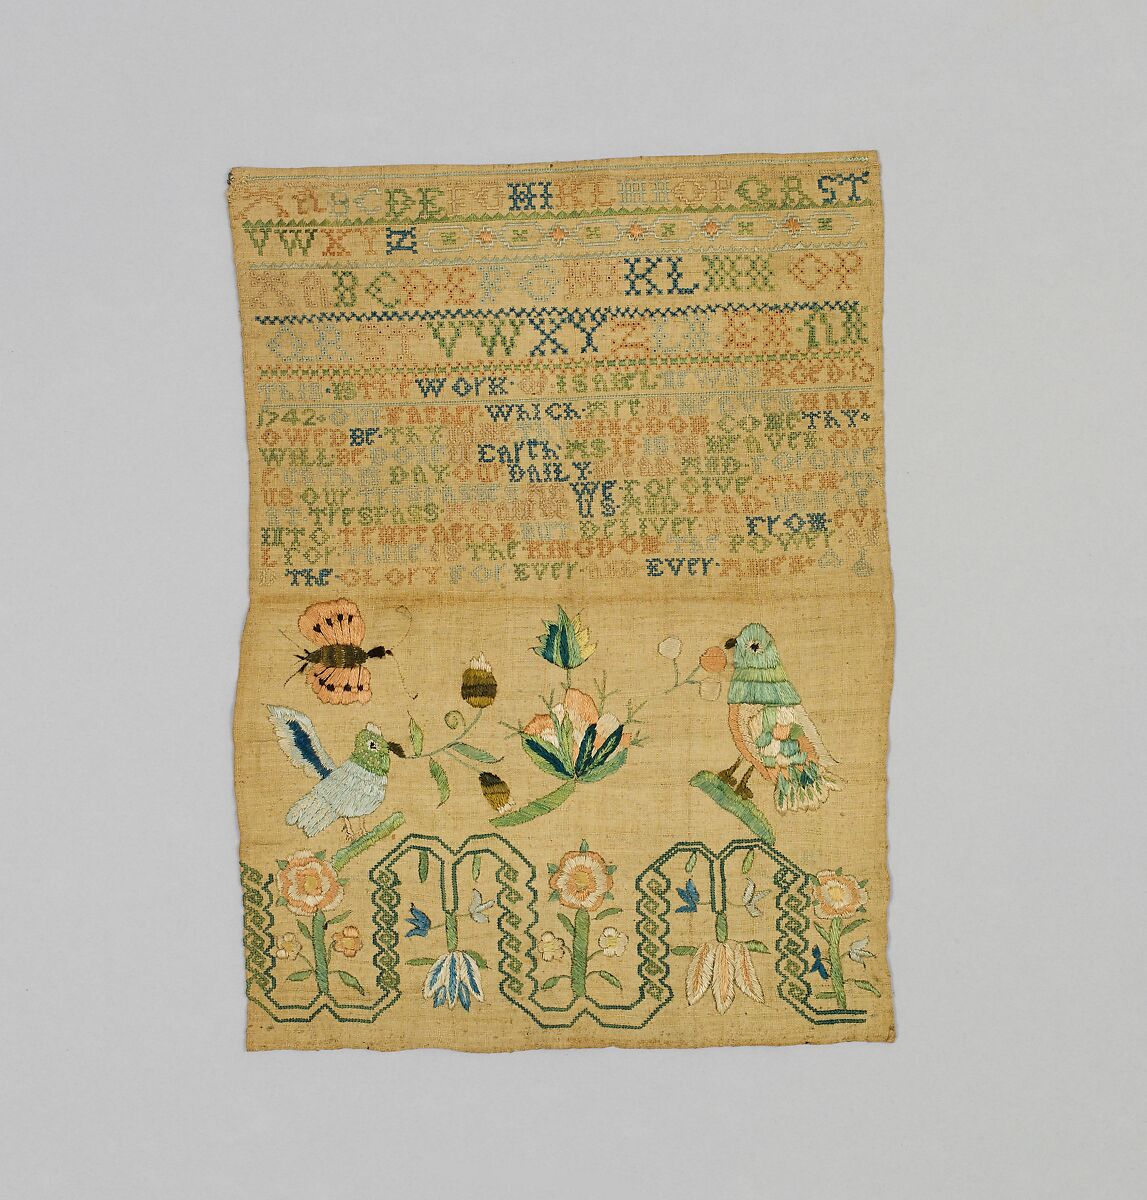 A B C D E F G H I K L M N O P Q R S T
V W X Y Z
A B C D E F G H I K L M N O P
Q R S T V W X Y Z
THIS · IS THE WORK · OF ISABEL · AGED 10
1742 · OUR FATHER WHICH · ART IN HEVEN HALL
OWED BE · THY KINGDOM COME THY ·
WILL BE DONE IN EARTH · AS IT IS IN HEAVEN GIV
DAY OUR DAILY · BREAD AND · FORGIVE
US OUR TRESPASSES AS WE · FORGIVE THEM
TRESPASS AGAINST US · AND LEAD US NOT
INTO TEMPTATION BUT DELIVER US FROM · EVI
L FOR THINE IS THE KINGDOM THE POWER AN
D THE · GLORY FOR EVER · AND EVER · AMEN ·